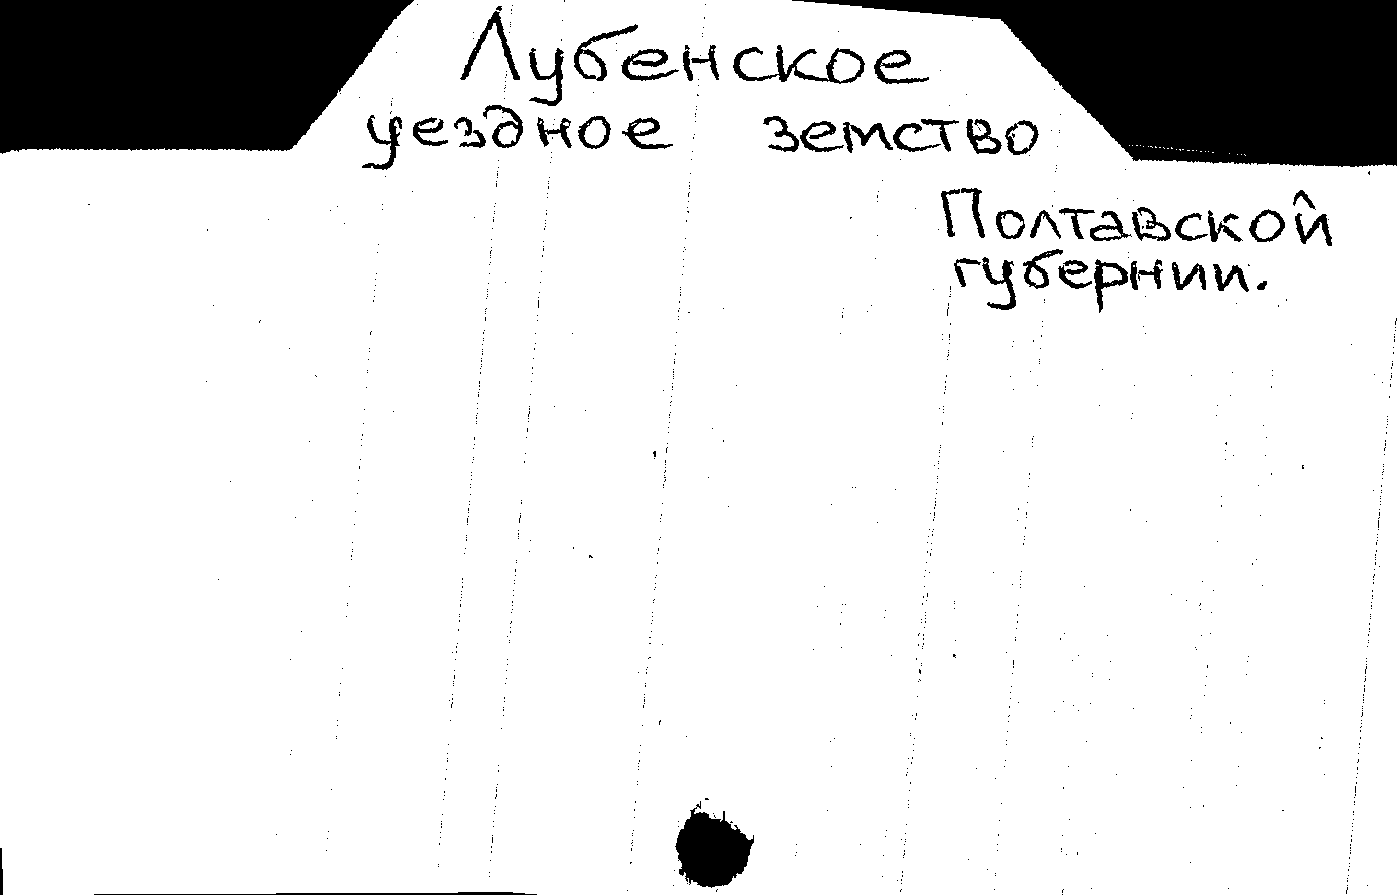 Лубенское
уездное земство
Полтавской
губернии.